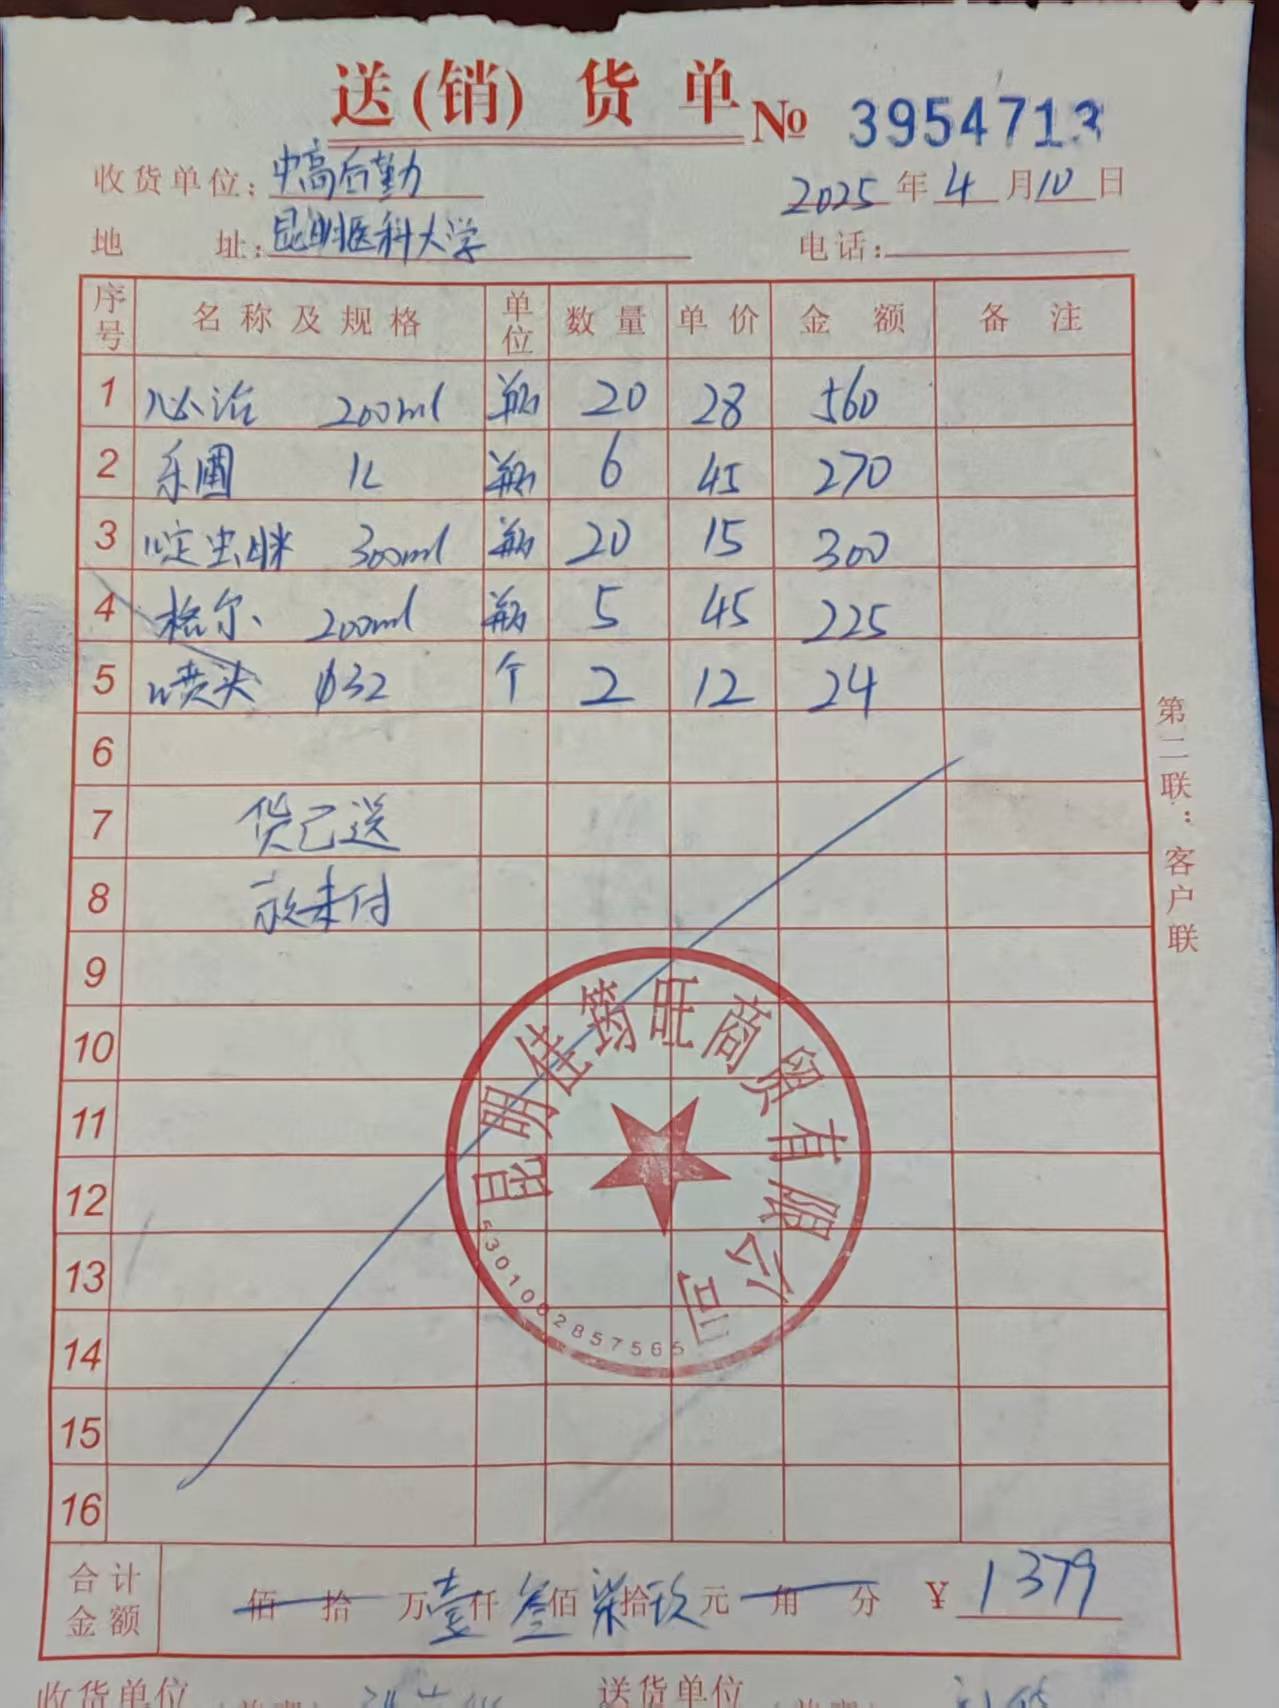 送(销) 货 单 № 3954713
收货单位: 中高后勤 2025年4月10日
地 址: 昆明医科大学 电话:
序号 名称及规格 单位 数量 单价 金额 备注
1 必治 200ml 瓶 20 28 560
2 乐圃 1L 瓶 6 45 270
3 啶虫脒 300ml 瓶 20 15 300
4 格尔 200ml 瓶 5 45 225
5 喷头 φ32 个 2 12 24
6
7 货已送
8 款未付
9
10
11
12
13
14
15
16
昆明佳筠旺商贸有限公司
5301002857565
合计金额 佰 拾 万壹仟叁佰柒拾玖元 角 分 ¥1379
第二联:客户联
收货单位
送货单位